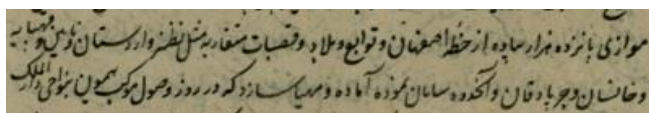 موازی پانزده هزار پیاده از خطهٔ اصفهان و توابع و بلاد و قصبات متقاربه مثل نطنز و اردستان و نایین و قهپایه
و خانسان و جربادقان و آنحدود سامان نموده آماده و مهیا سازد که در روز وصول موکب همیون بنواحی دار الملک